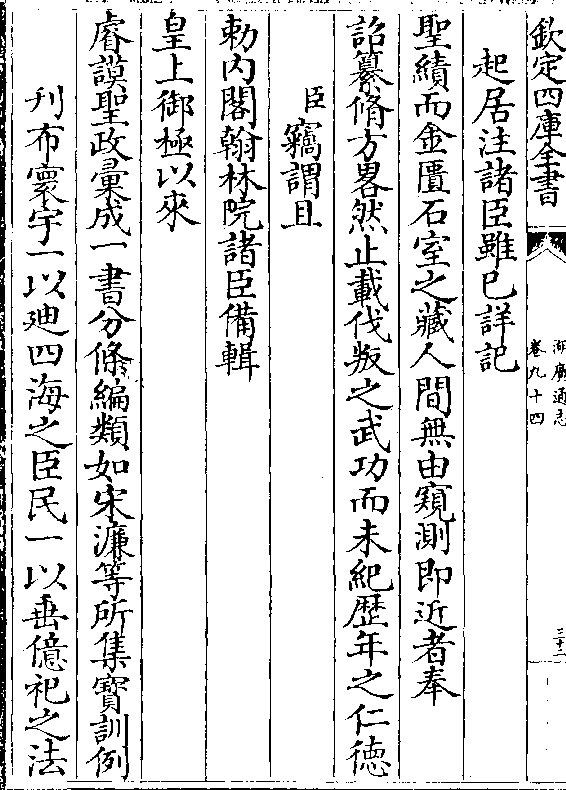 欽定四庫全書
湖廣通志
卷九十四
三十二
起居注諸臣雖已詳記
聖績而金匱石室之藏人間無由窺測即近者奉
詔纂脩方畧然止載伐叛之武功而未紀歴年之仁徳
臣竊謂且
勅内閣翰林院諸臣備輯
皇上御極以來
睿謨聖政彚成一書分條編類如宋濂等所集寳訓例
刋布寰宇一以廸四海之臣民一以垂億祀之法